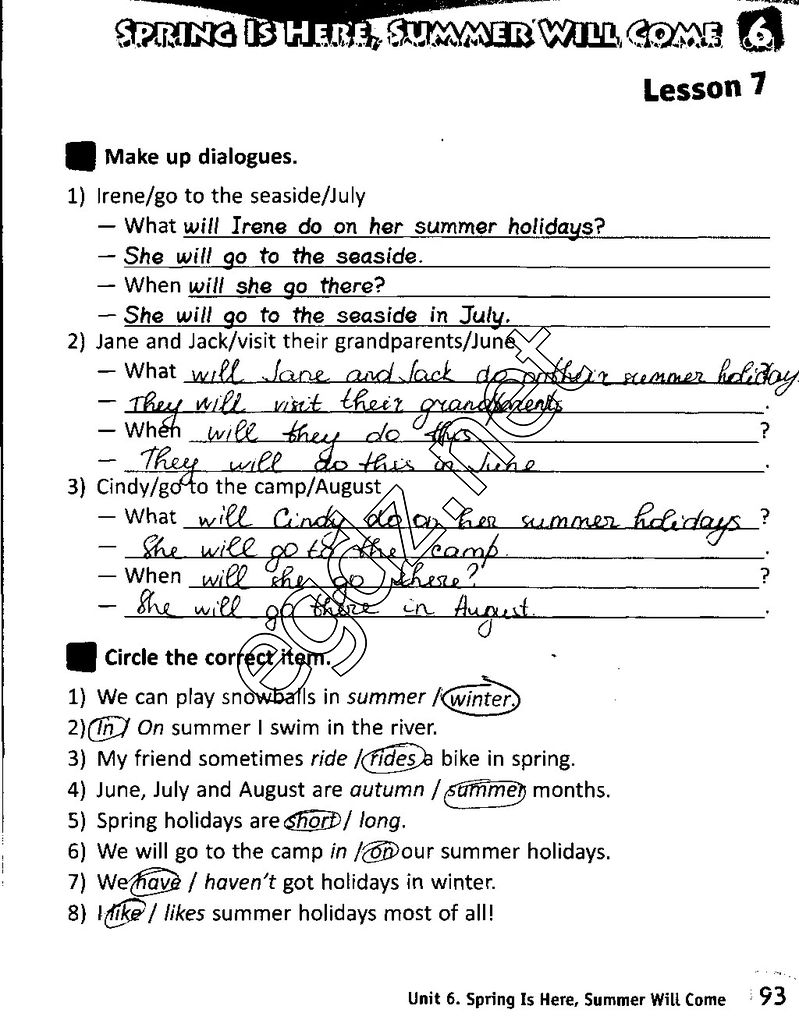 SPRING IS HERE, SUMMER WILL COME 6
Lesson 7
Make up dialogues.
1) Irene/go to the seaside/July
– What will Irene do on her summer holidays?
– She will go to the seaside.
– When will she go there?
– She will go to the seaside in July.
2) Jane and Jack/visit their grandparents/June
– What will Jane and Jack do on their summer holiday
– They will visit their grandparents.
– When will they do this ?
– They will do this in June.
3) Cindy/go to the camp/August
– What will Cindy do on her summer holidays ?
– She will go to the camp. .
– When will she go there? ?
– She will go there in August. .
Circle the correct item.
1) We can play snowballs in summer / winter.
2) In / On summer I swim in the river.
3) My friend sometimes ride / rides a bike in spring.
4) June, July and August are autumn / summer months.
5) Spring holidays are short / long.
6) We will go to the camp in / on our summer holidays.
7) We have / haven't got holidays in winter.
8) I like / likes summer holidays most of all!
egdz.net
Unit 6. Spring Is Here, Summer Will Come 93